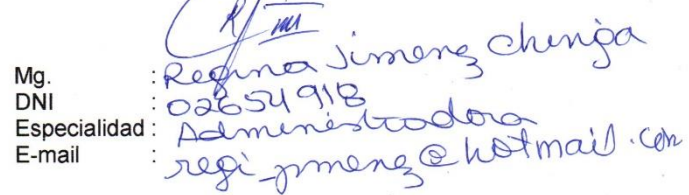 Mg. : Regina Jimenez Chinga
DNI : 02654918
Especialidad : Administradora
E-mail : regi_jimenez@hotmail.com